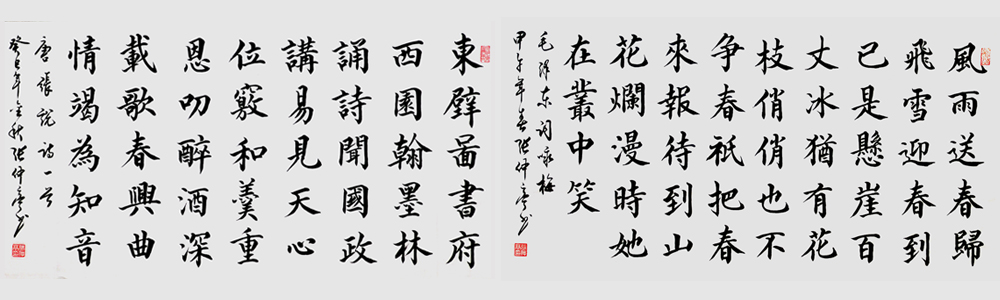 風雨送春歸
飛雪迎春到
已是懸崖百
丈冰猶有花
枝俏俏也不
争春祇把春
來報待到山
花爛漫時她
在叢中笑
毛泽东词咏梅
甲午年春张仲亭书
東壁啚書府
西園翰墨林
誦詩聞國政
講易見天心
位竊和羹重
恩叨醉酒深
載歌春興曲
情竭為知音
唐張說诗一首
癸巳年金秋张仲亭书